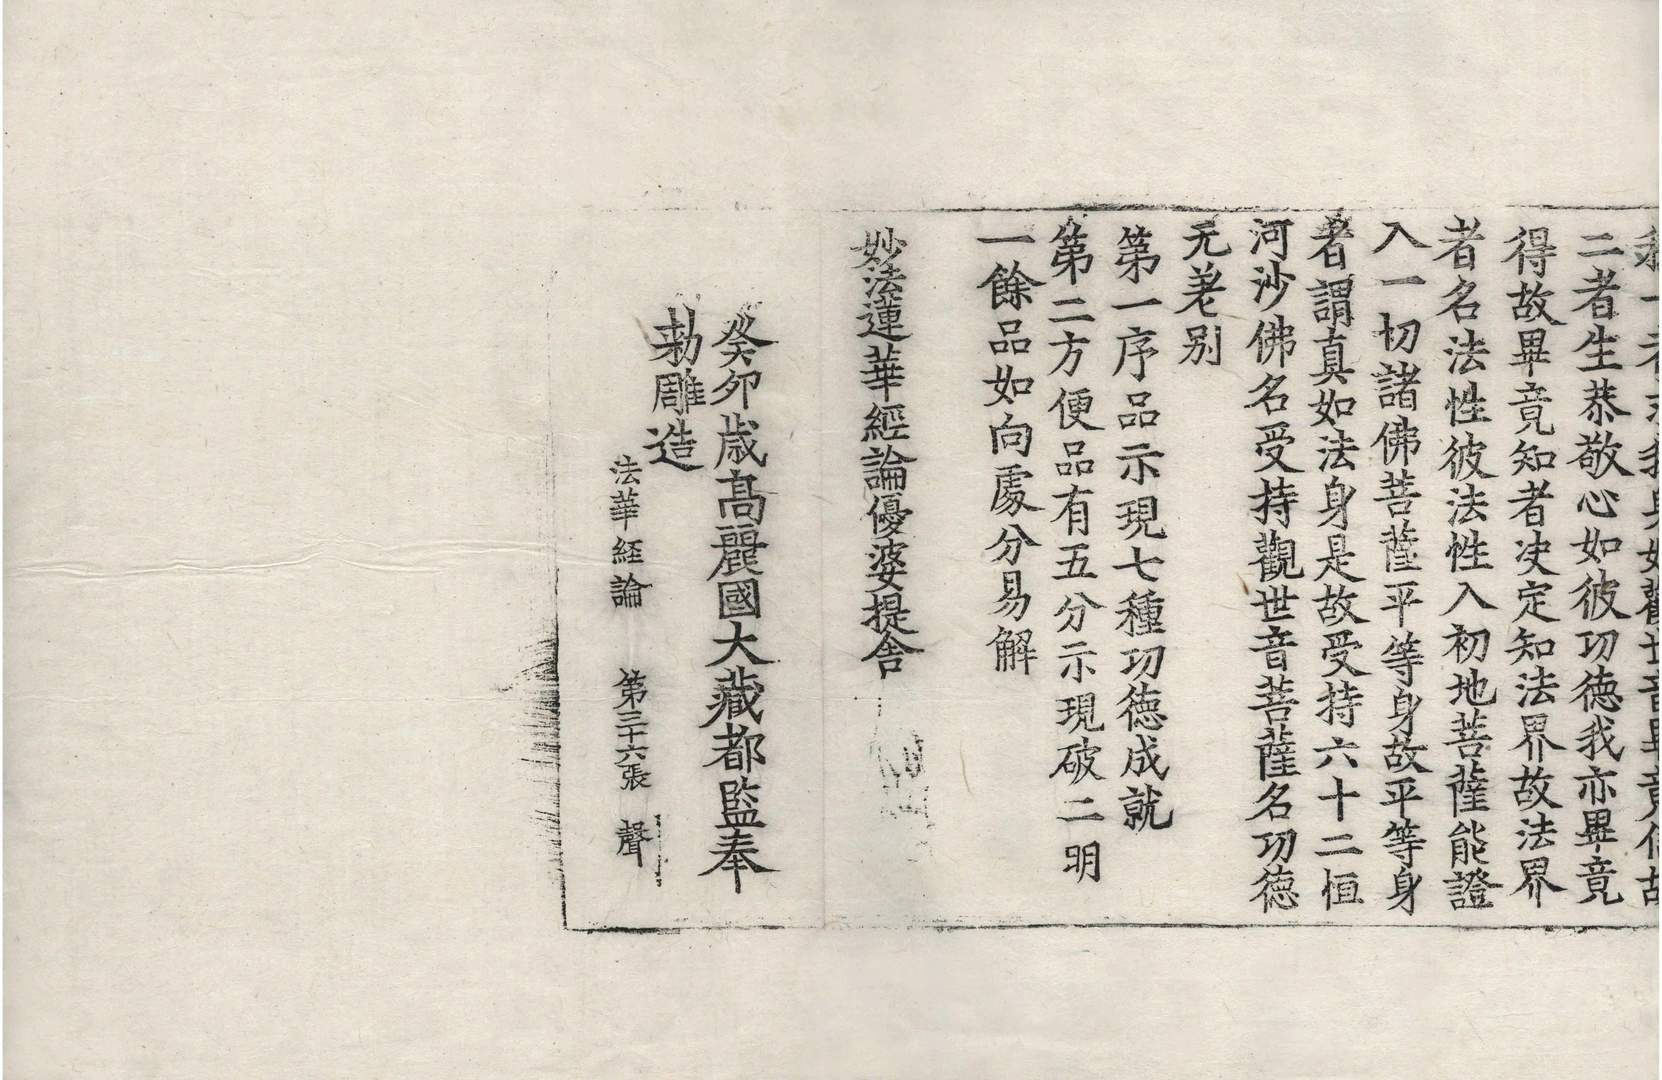 二者生恭敬心如彼功德我亦畢竟
得故畢竟知者决定知法界故法界
者名法性彼法性入初地菩薩能證
入一切諸佛菩薩平等身故平等身
者謂真如法身是故受持六十二恒
河沙佛名受持觀世音菩薩名功德
无差别
第一序品示現七種功德成就
第二方便品有五分示現破二明
一餘品如向處分易解
妙法蓮華經論優婆提舍
癸夘歲髙麗國大藏都監奉
勑雕造
法華経論 第三十六張 聲